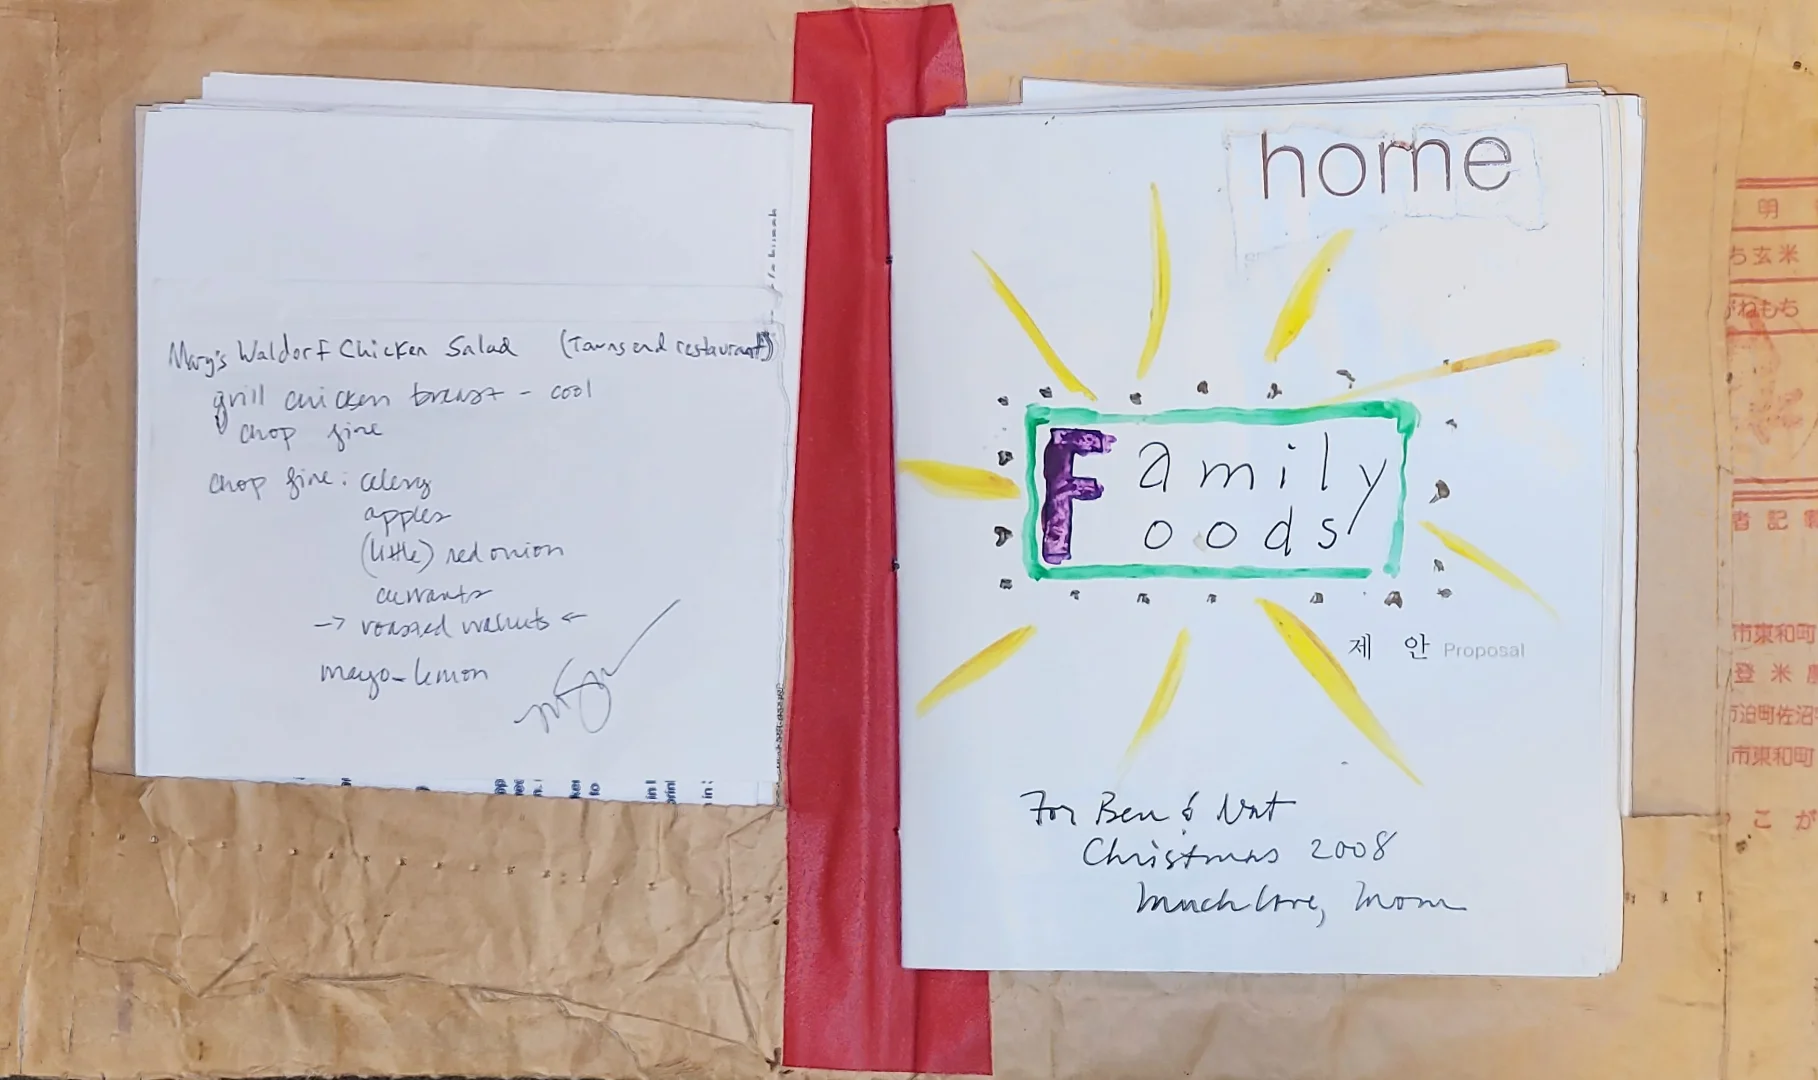 Mary's Waldorf Chicken Salad (Townsend restaurant)
grill chicken breast - cool
chop fine
chop fine: celery
apples
(little) red onion
currants
→ roasted walnuts ←
mayo - lemon
in
to
in
home
Family
Foods
제 안 Proposal
For Ben & Nat
Christmas 2008
Much love, Mom
明
ち玄米
がねもち
者記載
市東和町
登米
市迫町佐沼
市東和町
こが